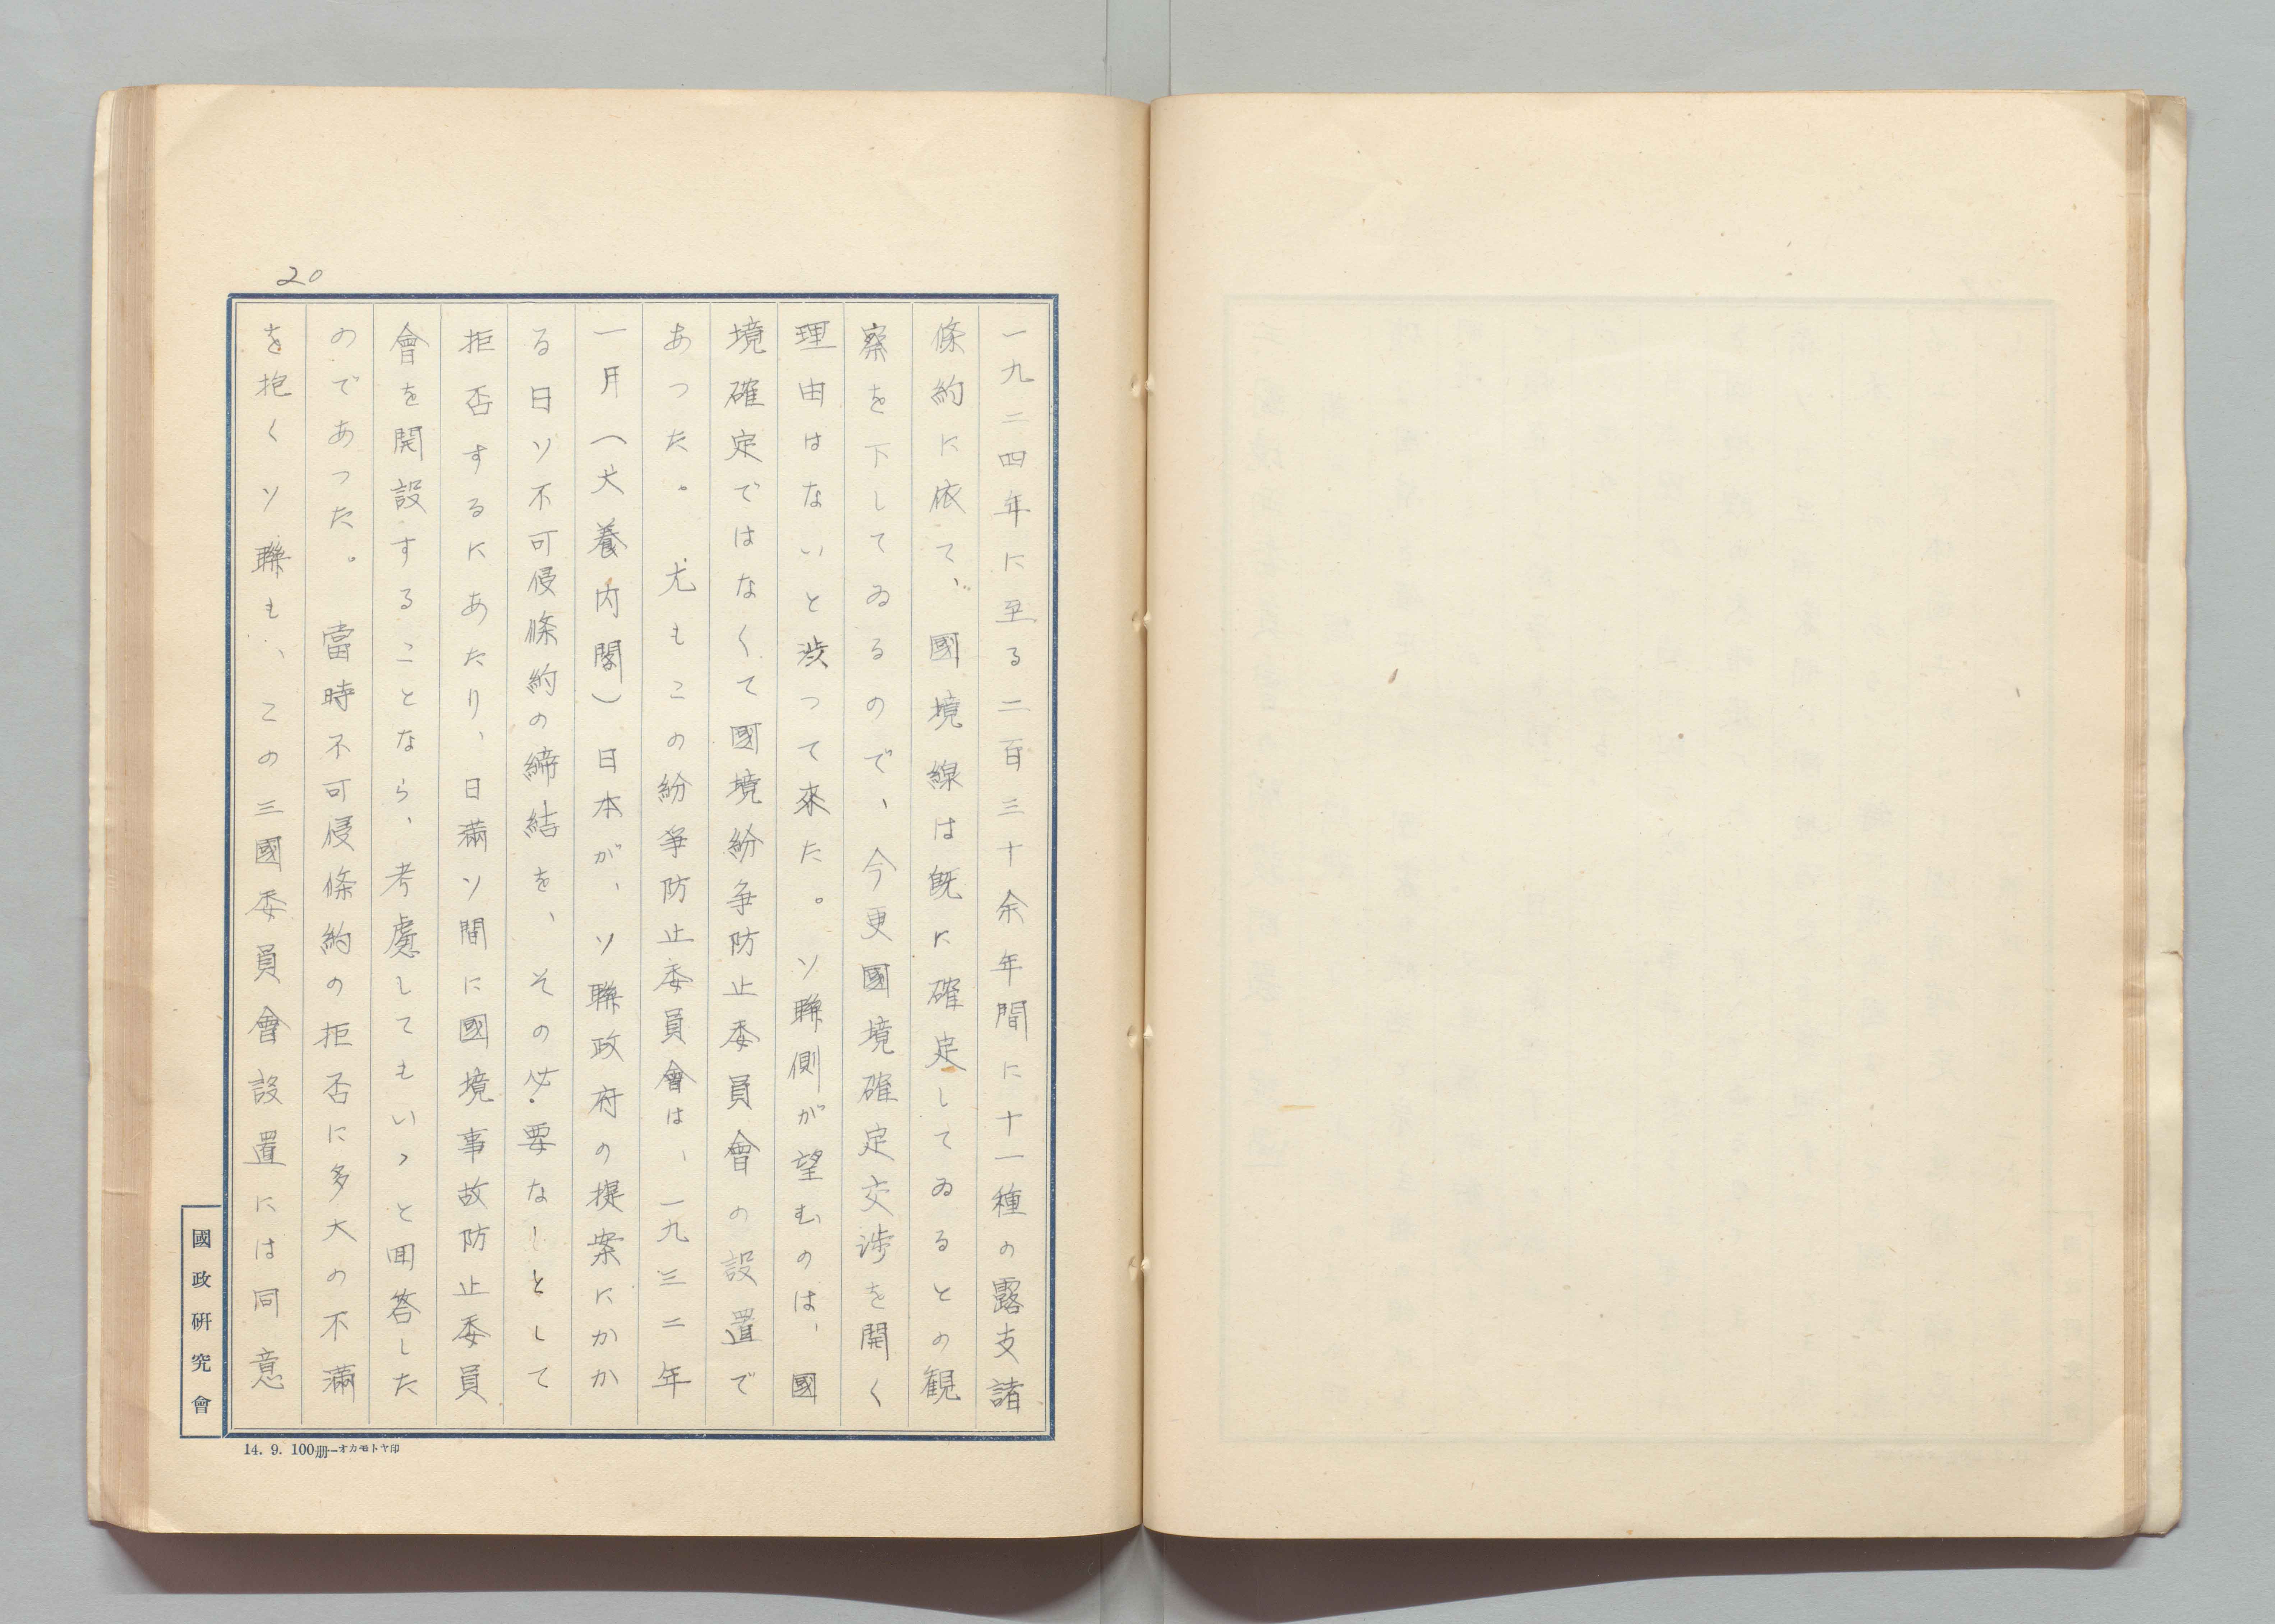 20
一九二四年に至る二百三十余年間に十一種の露支諸
條約に依て、國境線は既に確定してゐるとの観
察を下してゐるので、今更國境確定交渉を開く
理由はないと渋つて來た。ソ聯側が望むのは、國
境確定ではなくて國境紛爭防止委員會の設置で
あつた。尤もこの紛爭防止委員會は、一九三二年
一月（犬養内閣）日本が、ソ聯政府の提案にかか
る日ソ不可侵條約の締結を、その必要なしとして
拒否するにあたり、日滿ソ間に國境事故防止委員
會を開設することなら、考慮してもいゝと回答した
のであつた。當時不可侵條約の拒否に多大の不滿
を抱くソ聯も、この三國委員會設置には同意
國政研究會
14. 9. 100册—オカモトヤ印